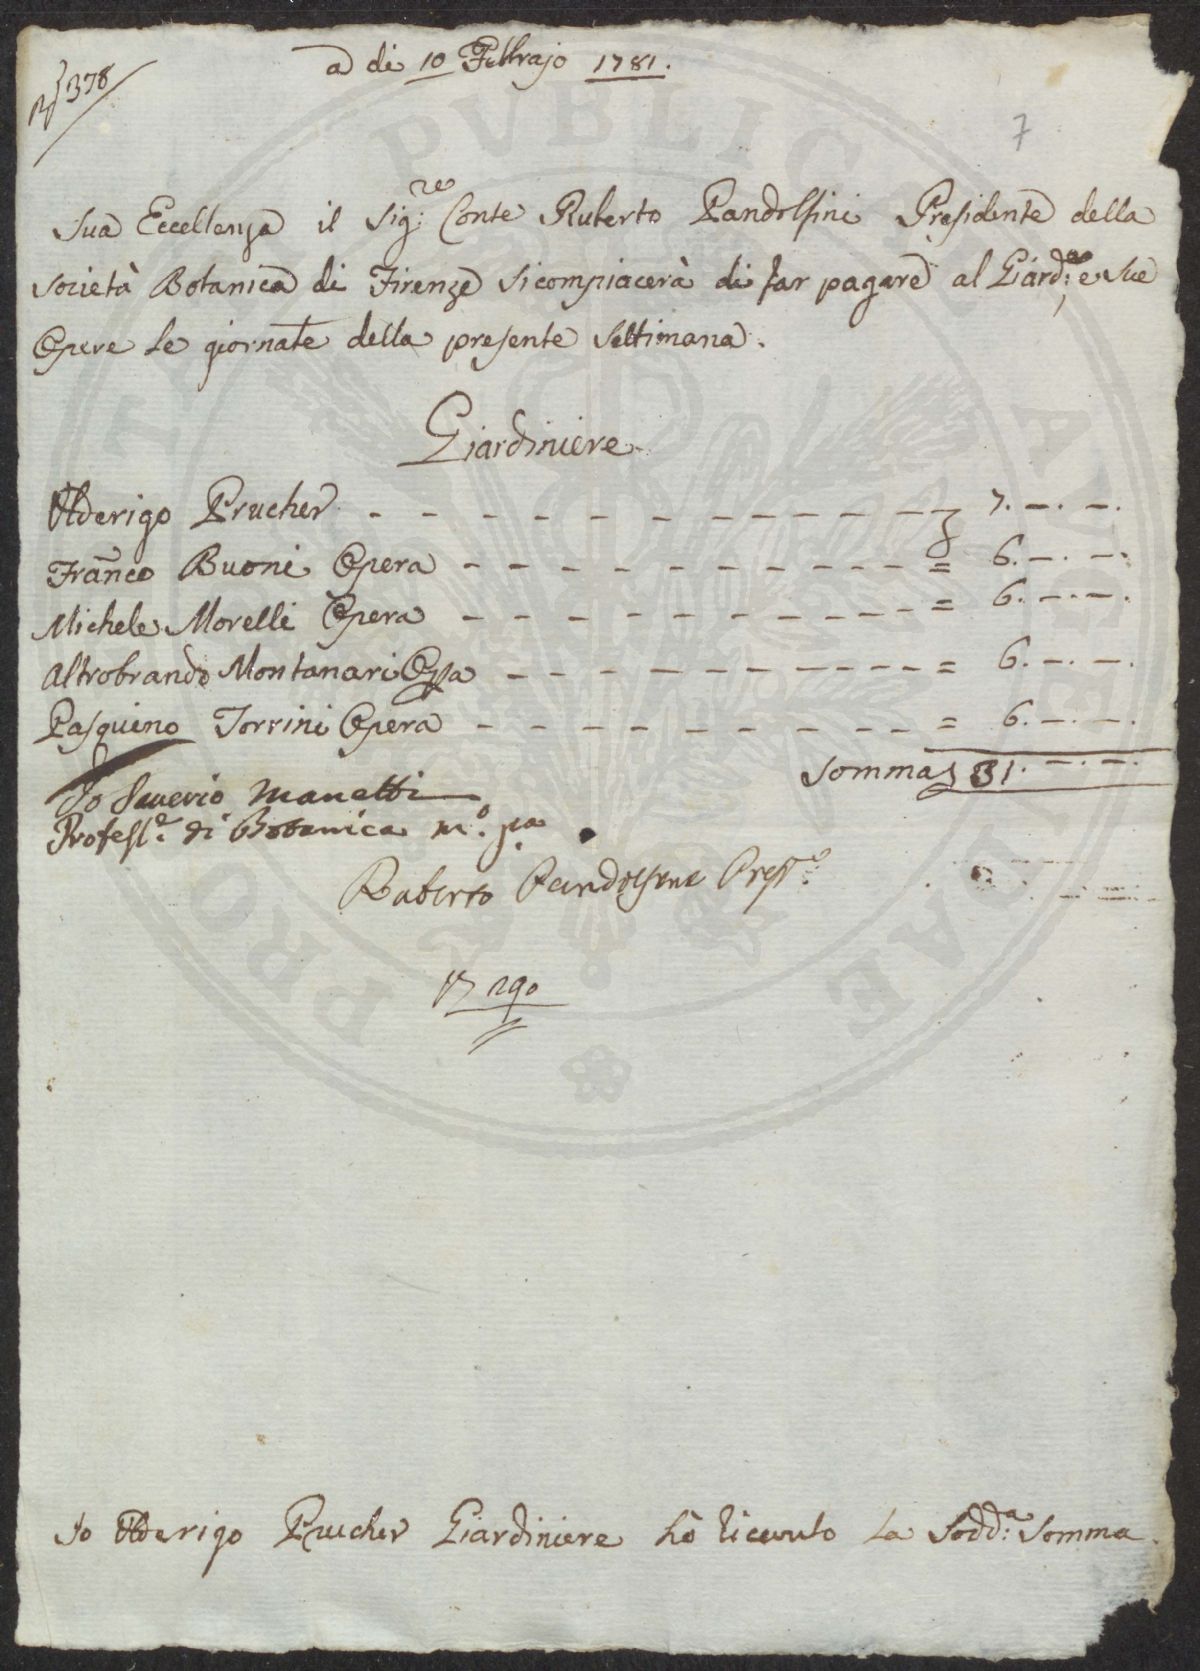 a di 10 Febbrajo 1781.
378
7
Sua Eccellenza il Sig:re Conte Ruberto Pandolfini Presidente della
società Botanica di Firenze si compiacerà di far pagare al Giard:re e sue
Opere le giornate della presente settimana.
Giardiniere
Ulderigo Prucher - - - - - - - - - - - 7. —. —.
Franco Buoni Opera - - - - - - - - - - = 6. —. —.
Michele Morelli Opera - - - - - - - - - - = 6. —. —.
Altrobrando Montanari Opa - - - - - - - - - = 6. —. —.
Pasquino Torrini Opera - - - - - - - - - - = 6. —. —.
Somma 31. —. —.
Io Saverio Manetti
Profess.e di Botanica m.o pa
Ruberto Pandolfini Press.e
290
Io Ulderigo Prucher Giardiniere hò ricevuto la Sodd:a Somma.